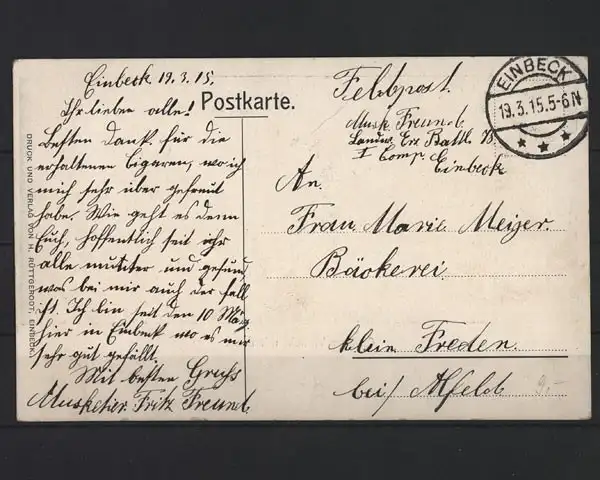 Einbeck 19.3.15.
Ihr lieben alle!
Besten Dank für die
erhaltenen Cigaren, wo ich
mich sehr über gefreut
habe. Wie geht es denn
Euch, hoffentlich seit ihr
alle munter und gesund,
was bei mir auch der Fall
ist. Ich bin seit den 10 März
hier in Einbeck wo es mir
sehr gut gefällt.
Mit besten Gruß
Musketier Fritz Freund.
DRUCK UND VERLAG VON H. RÜTTGERODT, EINBECK.
Postkarte.
Feldpost.
EINBECK
19.3.15.5-6N
Musk. Freund
Ers. Batl. 78
I Comp.
Einbeck
An.
Frau Marie Meiger.
Bäckerei
klein Freden.
bei/ Alfeld
9.-